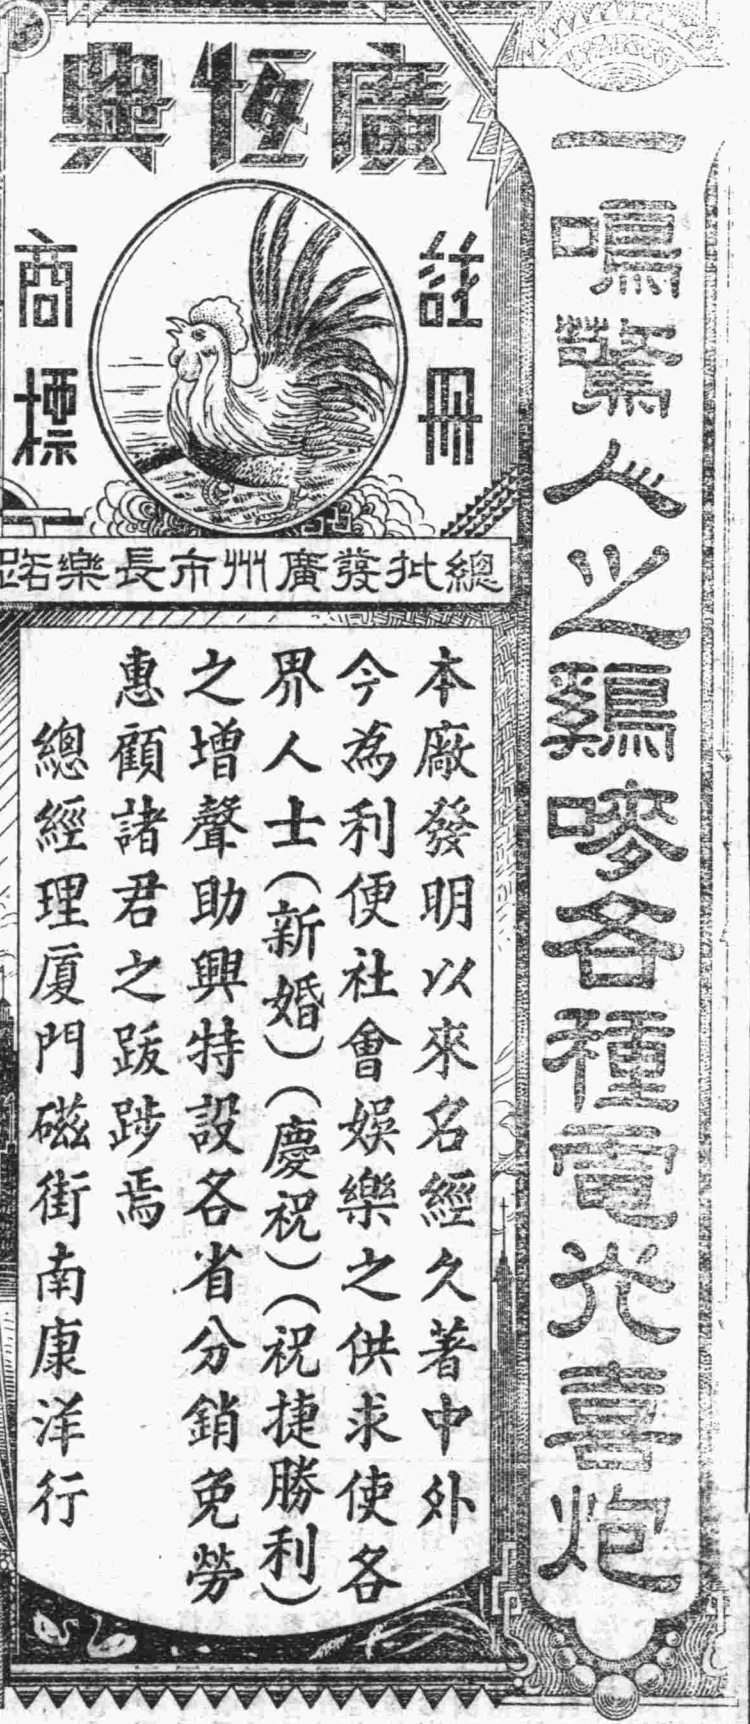 一鳴驚人之鷄嘜各種電光喜炮
廣恆興
註冊
商標
總批發廣州市長樂路
本廠發明以來名經久著中外
今為利便社會娛樂之供求使各
界人士（新婚）（慶祝）（祝捷勝利）
之增聲助興特設各省分銷免勞
惠顧諸君之跋踄焉
總經理厦門磁街南康洋行